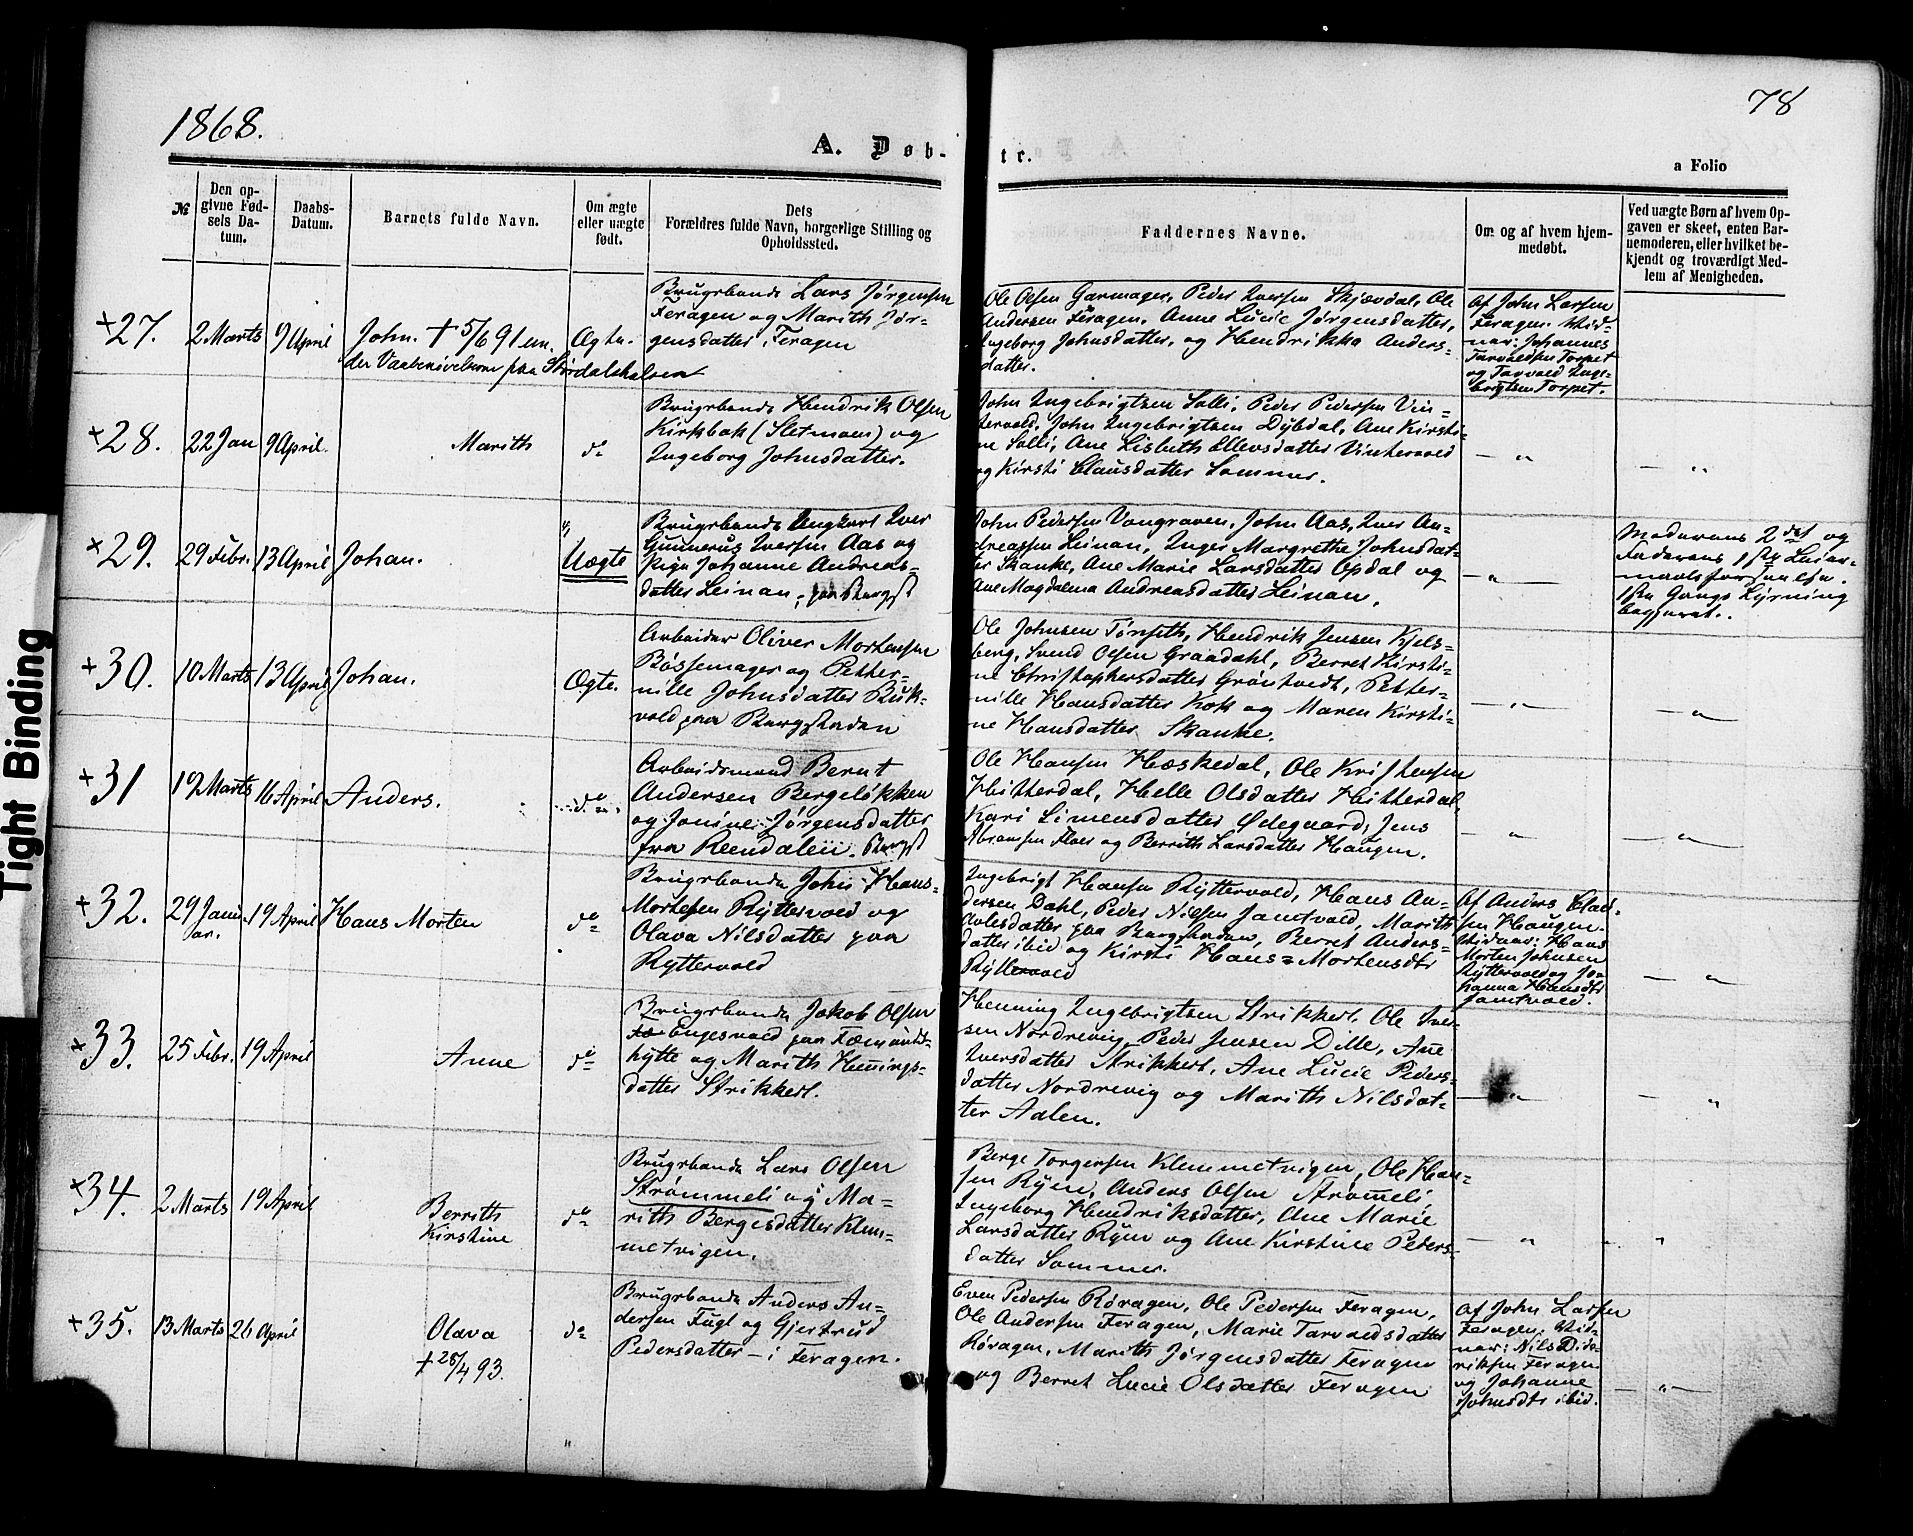 1868.
78
A. Døb-
tr.
a Folio
№
Den op-
givne Fød-
sels Da-
tum.
Daabs-
Datum.
Barnets fulde Navn.
Om ægte
eller uægte
født.
Dets
Forældres fulde Navn, borgerlige Stilling og
Opholdssted.
Faddernes Navne.
Om og af hvem hjem-
medøbt.
Ved uægte Børn af hvem Op-
gaven er skeet, enten Bar-
nemoderen, eller hvilket be-
kjendt og troværdigt Med-
lem af Menigheden.
+27.
2 Marts
9 April
John. + 5/6 91 un-
der Vaabenøvelserne paa Størdalshalsen
Ægte.
Brugsbonde Lars Jørgensen
Feragen og Marith Jør-
gensdatter, Feragen
Ole Olsen Garmager, Peder Iversen Skjævdal, Ole
Andersen Feragen, Anne Lucie Jørgensdatter,
Ingeborg Johnsdatter, og Hendrikke Anders-
datter.
Af John Larsen
Feragen. Vid-
ner: Johannes
Tarvaldsen Torpet
og Tarvald Inge-
brigtsen Torpet.
+28.
22 Jan
9 April.
Marith
do
Brugsbonde Hendrik Olsen
Kirkbak (Sletmoen) og
Ingeborg Johnsdatter.
John Ingebrigtsen Solli, Peder Pedersen Vin-
tervold, John Ingebrigtsen Dybdal, Ane Kirsti-
ne Solli, Ane Lisbeth Ellevsdatter Vintervold
og Kirsti Clausdatter Sommer.
— " —
— " —
+29.
29 Febr.
13 April
Johan.
Uægte
Brugsbonde Ungkarl Iver
Gunnerus Iversen Aas og
Pige Johanne Andreas-
datter Leinan, paa Bergst
John Pedersen Vongraven, John Aas, Iver An-
dreassen Leinan, Inger Margrethe Johnsdat-
ter Skanke, Ane Marie Larsdatter Opdal og
Ane Magdalena Andreasdatter Leinan.
— " —
Moderens 2det og
Faderens 1ste Leier-
maalsforseelse.
1ste Gangs Lysning
begjæret.
+30.
10 Marts
13 April
Johan.
Ægte.
Arbeider Oliver Mortensen
Bøssemager og Petter-
nille Johnsdatter Buk-
vold paa Bergstaden
Ole Johnsen Tørseth, Hendrik Jensen Kjels-
berg, Svend Olsen Graadahl, Berret Kirsti-
ne Christophersdatter Grøntvedt, Petter-
nille Hansdatter Kok og Maren Kirsti-
ne Hansdatter Skanke.
— " —
— " —
+31
19 Marts
16 April
Anders.
do
Arbeidsmand Bernt
Andersen Bergeløkken
og Jonine Jørgensdatter
fra Reendalen. Bergst
Ole Hansen Hæskedal, Ole Kristensen
Hitterdal, Helle Olsdatter Hitterdal,
Kari Simensdatter Ødegaard, Jens
Abramsen Floer og Berrith Larsdatter Haugen.
— " —
— " —
+32.
29 Janu-
ar.
19 April
Hans Morten
do
Brugsbonde John Hans-
Mortensen Ryttervold og
Olava Nilsdatter paa
Ryttervold
Ingebrigt Hansen Ryttervold, Hans An-
dersen Dahl, Peder Nilsen Jamtvold, Marith
Andersdatter paa Bergstaden, Berret Anders-
datter ibid og Kirsti Hans-Mortensdtr
Ryttervold
Af Anders Clau-
sen Haugen.
Vidner: Hans
Morten Johnsen
Ryttervold og Jo-
hanna Hansdtr
Jamtvold.
— " —
+33.
25 Febr.
19 April
Anne
do
Brugsbonde Jakob Olsen
Fæ Engesvold paa Fæmunds-
hytte og Marith Hennings-
datter Strikkert.
Henning Ingebrigtsen Strikkert, Ole Iver-
sen Nordrevig, Peder Jensen Dille, Ane
Iversdatter Strikkert, Ane Lucie Peders-
datter Nordrevig og Marith Nilsdat-
ter Aalen.
— " —
— "
+34.
2 Marts
19 April
Berrith
Kirstine
do
Brugsbonde Lars Olsen
Strømmeli og Ma-
rith Bergesdatter Klem-
metvigen.
Berge Torgersen Klemmetvigen, Ole Han-
sen Ryen, Anders Olsen Strømeli,
Ingeborg Hendriksdatter, Ane Marie
Larsdatter Ryen og Ane Kirstine Peders-
datter Sommer.
— " —
"
+35.
13 Marts
26 April
Olava
+ 28/4 93.
do
Brugsbonde Anders An-
dersen Fugl og Gjertrud
Pedersdatter - i Feragen.
Even Pedersen Røragen, Ole Pedersen Feragen,
Ole Andersen Feragen, Marie Tarvaldsdatter
Røragen, Marith Jørgensdatter Feragen
og Berret Lucie Olsdatter Feragen
Af John Larsen
Feragen. Vid-
ner: Nils Did-
riksen Feragen
og Johanne
Johnsdtr ibid.
— " —
Tight Binding